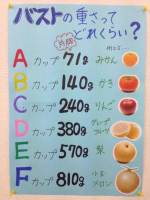 バストの重さって
どれくらい?
片胸
A カップ 71g みかん
B カップ 140g かき
C カップ 240g りんご
D カップ 380g グレープフルーツ
E カップ 570g 梨
F カップ 810g 小玉メロン